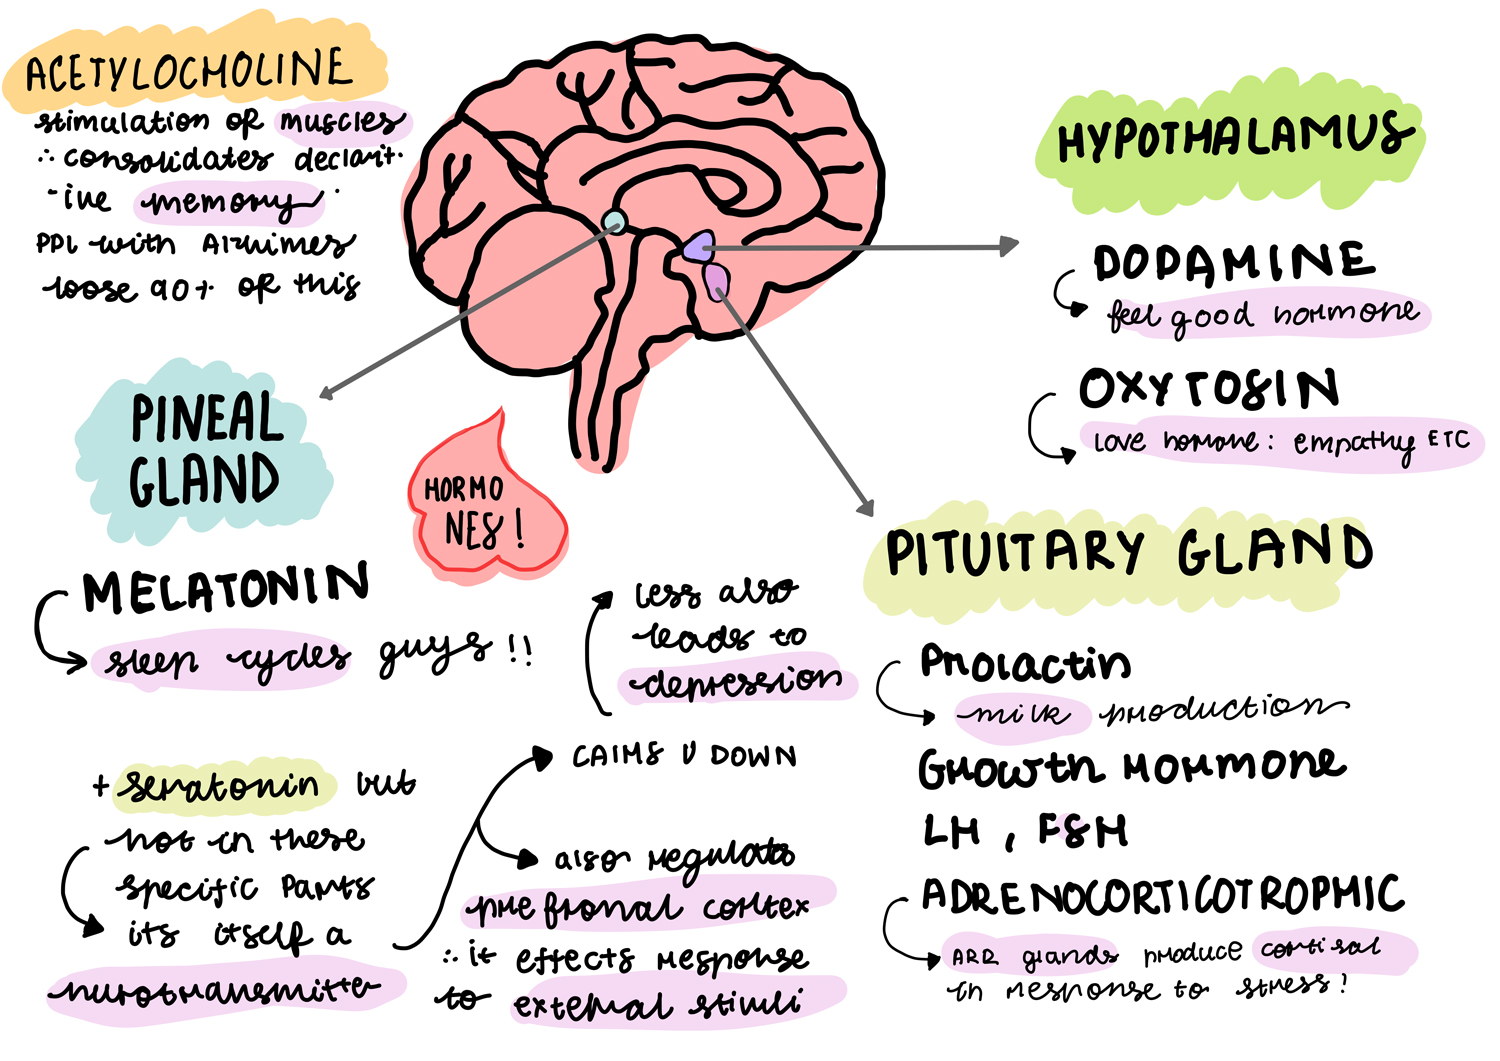 ACETYLOCHOLINE
stimulation of muscles
∴ consolidates declarit-
-ive memory
PPL with Alzhimes
loose 90% of this
HYPOTHALAMUS
DOPAMINE
feel good hormone
OXYTOSIN
LOVE homone: empathy ETC
PINEAL
GLAND
MELATONIN
sleep cycles guys !!
HORMO
NES !
PITUITARY GLAND
Prolactin
milk production
Growth Hormone
LH , FSH
ADRENOCORTICOTROPHIC
ADR glands produce cortisal
in response to stress!
less also
leads to
depression
CALMS U DOWN
+ seratonin but
not in these
specific parts
its itself a
nurotransmitter
also regulats
pre fronal cortex
∴ it effects response
to external stimuli